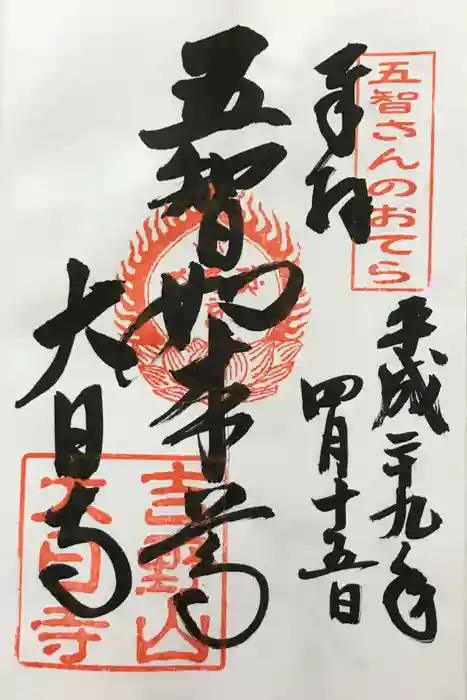 五智さんのおてら
奉拝
平成二十九年
四月十五日
五智如来尊
大日寺
吉野山
大日寺